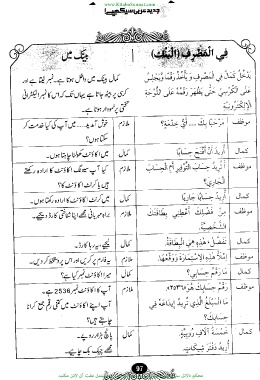 www.KitaboSunnat.com
جدید عربی سیکھیے!
فِي الْمَصْرِفِ (الْبَنْك)
بینک میں
يَدْخُلُ كَمَالٌ فِي الْمَصْرِفِ وَ يَأْخُذُ رَقْمًا وَيَجْلِسُ
عَلَى الْكُرْسِيِّ حَتَّى يَظْهَرَ رَقْمُهُ عَلَى اللَّوْحَةِ
الْإِلِكْتُرُونِيَّةِ
کمال بینک میں داخل ہوتا ہے۔ نمبر لیتا ہے اور
کرسی پر بیٹھ جاتا ہے یہاں تک کہ اس کا نمبر الیکٹرانی
تختی پر نمودار ہوتا ہے۔
موظف
مَرْحَبًا بِكَ... أَيُّ خِدْمَةٍ؟
ملازم
خوش آمدید... میں آپ کی کیا خدمت کر
سکتا ہوں؟
كمال
أُرِيدُ أَنْ أَفْتَحَ حِسَابًا
کمال
میں اکاؤنٹ کھولنا چاہتا ہوں۔
موظف
أَتُرِيدُ حِسَابَ التَّوْفِيرِ أَمِ الْحِسَابَ
الْجَارِيَ؟
ملازم
کیا آپ سیونگ اکاؤنٹ کا ارادہ رکھتے
ہیں یا کرنٹ اکاؤنٹ کا؟
كمال
أُرِيدُ حِسَابًا جَارِيًا
کمال
میں کرنٹ اکاؤنٹ کا ارادہ رکھتا ہوں۔
موظف
مِنْ فَضْلِكَ أَعْطِنِي بِطَاقَتَكَ
الشَّخْصِيَّةَ.
ملازم
براہ مہربانی مجھے اپنا شناختی کارڈ دیجیے۔
كمال
تَفَضَّلْ، هٰذِهِ هِيَ الْبِطَاقَةُ
کمال
لیجیے، یہ رہا کارڈ۔
موظف
اِمْلَأْ هٰذِهِ الْاِسْتِمَارَةَ وَوَقِّعْهَا.
ملازم
یہ فارم پر کریں اور اس پر دستخط کر دیں۔
كمال
مَا رَقْمُ حِسَابِي؟
کمال
میرا اکاؤنٹ نمبر کیا ہے؟
موظف
رَقْمُ حِسَابِكَ هُوَ ٢٥٣٦
مَا الْمَبْلَغُ الَّذِي تُرِيدُ إِيدَاعَهُ فِي
حِسَابِكَ؟
ملازم
آپ کا اکاؤنٹ نمبر 2536 ہے۔
آپ اپنے اکاؤنٹ میں کتنی رقم جمع کرانا
چاہتے ہیں؟
كمال
خَمْسَةَ آلَافِ رُوبِيَّةٍ
أُرِيدُ دَفْتَرَ شِيكَاتٍ.
کمال
پانچ ہزار روپے۔
مجھے چیک بک چاہیے۔
97